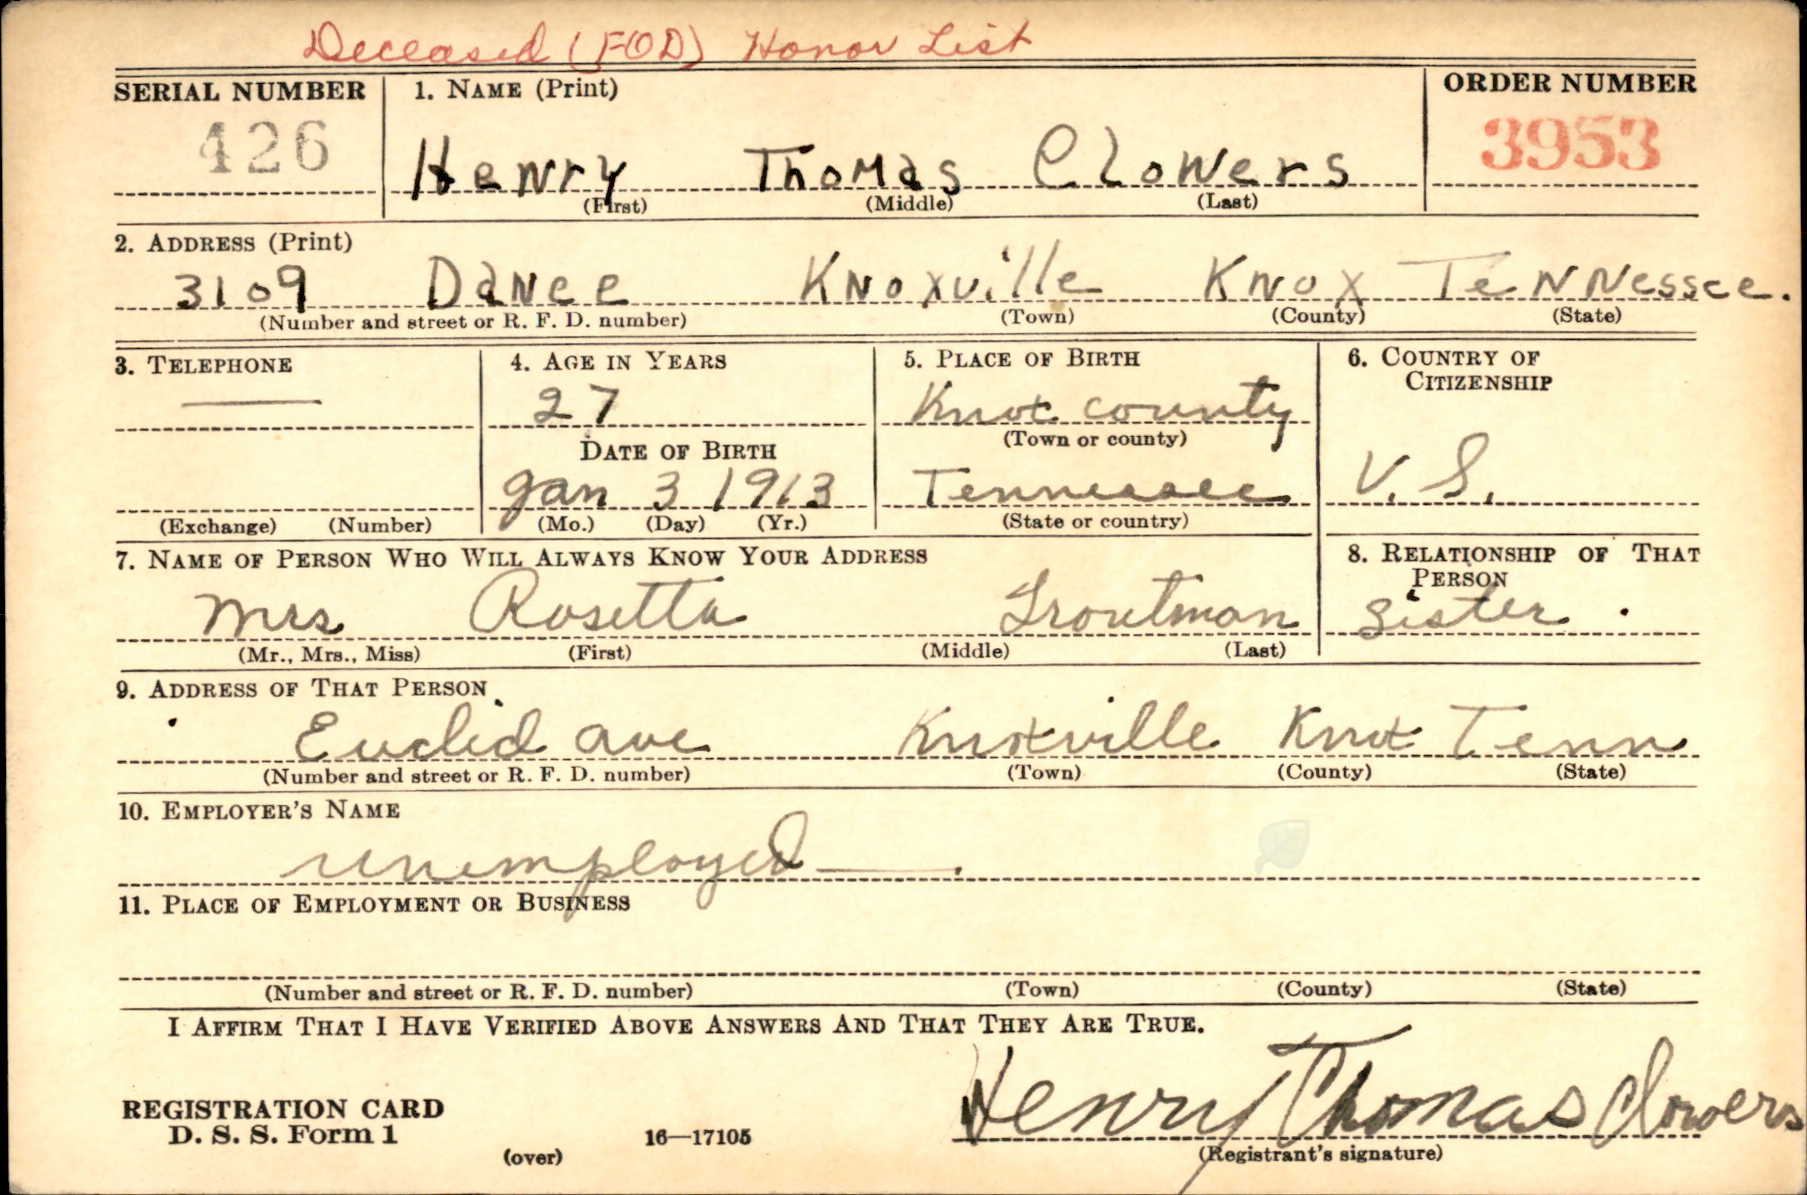 Deceased (FOD) Honor List
SERIAL NUMBER
426
1. NAME (Print)
Henry Thomas Clowers
(First) (Middle) (Last)
ORDER NUMBER
3953
2. ADDRESS (Print)
3109 Dance Knoxville Knox Tennessee.
(Number and street or R. F. D. number) (Town) (County) (State)
3. TELEPHONE
(Exchange) (Number)
4. AGE IN YEARS
27
DATE OF BIRTH
Jan 3 1913
(Mo.) (Day) (Yr.)
5. PLACE OF BIRTH
Knox county
(Town or county)
Tennessee
(State or country)
6. COUNTRY OF
CITIZENSHIP
U. S.
7. NAME OF PERSON WHO WILL ALWAYS KNOW YOUR ADDRESS
Mrs Rosetta Troutman
(Mr., Mrs., Miss) (First) (Middle) (Last)
8. RELATIONSHIP OF THAT
PERSON
Sister .
9. ADDRESS OF THAT PERSON
Euclid ave Knoxville Knox Tenn
(Number and street or R. F. D. number) (Town) (County) (State)
10. EMPLOYER'S NAME
unemployed
11. PLACE OF EMPLOYMENT OR BUSINESS
(Number and street or R. F. D. number) (Town) (County) (State)
I AFFIRM THAT I HAVE VERIFIED ABOVE ANSWERS AND THAT THEY ARE TRUE.
Henry Thomas Clowers
(Registrant's signature)
REGISTRATION CARD
D. S. S. Form 1
(over)
16—17105